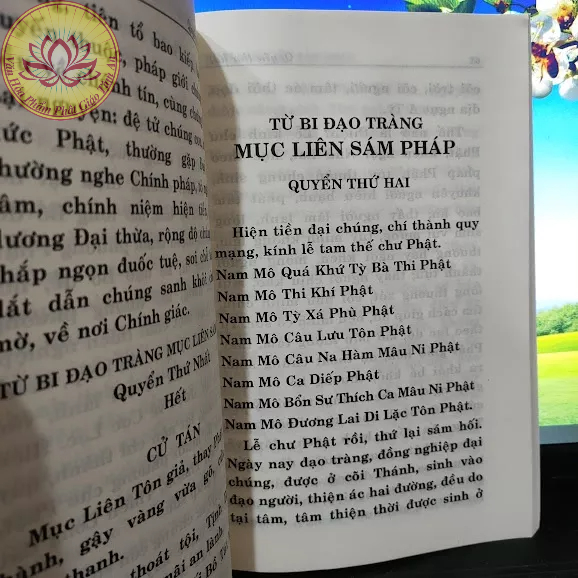 tiên tổ bao kiếp
pháp giới
tín, cùng
đệ tử chúng con
Phật, thường gặp
thường nghe Chính pháp,
tâm, chính niệm hiện tiền
lương Đại thừa, rộng độ chúng
thắp ngọn đuốc tuệ, soi
dắt dẫn chúng sanh khỏi
mờ, về nơi Chính giác.
TỪ BI ĐẠO TRÀNG MỤC LIÊN SÁM
Quyển Thứ Nhất
Hết
CỬ TÁN
Mục Liên Tôn giả, thay
gậy vàng vừa gõ,
thanh.
thoát tội, Tịnh
an lành
Bồ Tát
TỪ BI ĐẠO TRÀNG
MỤC LIÊN SÁM PHÁP
QUYỂN THỨ HAI
Hiện tiền đại chúng, chí thành quy
mạng, kính lễ tam thế chư Phật.
Nam Mô Quá Khứ Tỳ Bà Thi Phật
Nam Mô Thi Khí Phật
Nam Mô Tỳ Xá Phù Phật
Nam Mô Câu Lưu Tôn Phật
Nam Mô Câu Na Hàm Mâu Ni Phật
Nam Mô Ca Diếp Phật
Nam Mô Bổn Sư Thích Ca Mâu Ni Phật
Nam Mô Đương Lai Di Lặc Tôn Phật.
Lễ chư Phật rồi, thứ lại sám hối.
Ngày nay đạo tràng, đồng nghiệp đại
chúng, được ở cõi Thánh, sinh vào
đạo người, thiện ác hai đường, đều do
tại tâm, tâm thiện thời được sinh ở